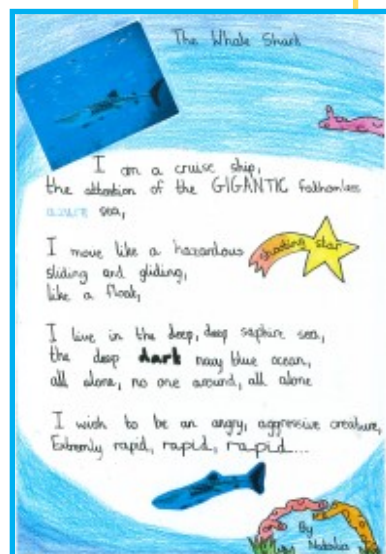 The Whale Shark
I am a cruise ship,
the attention of the GIGANTIC fathomless
azure sea,
I move like a hazardous
shooting star
sliding and gliding,
like a float,
I live in the deep, deep saphire sea,
the deep dark navy blue ocean,
all alone, no one around, all alone
I wish to be an angry, aggressive creature,
Extremly rapid, rapid, rapid...
By
Natasha